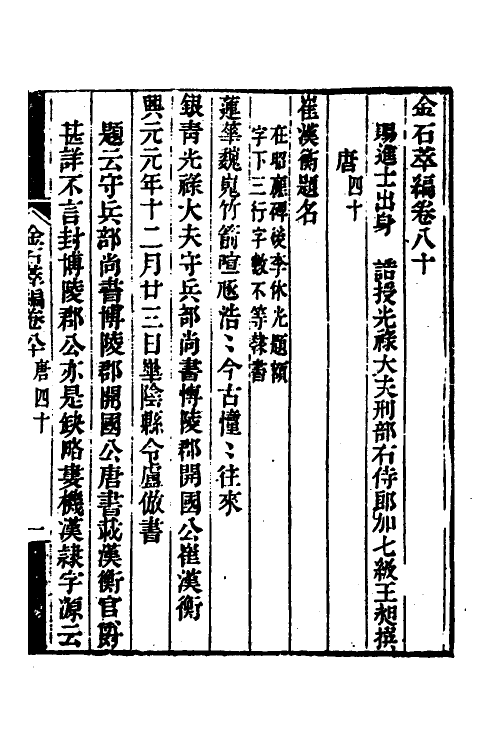 金石萃編卷八十
賜進士出身　誥授光祿大夫刑部右侍郎加七級王昶撰
唐四十
崔漢衡題名
在昭應碑後李休光題額
字下三行字數不等隸書
蓮華巍嵬竹箭喧豗浩〻今古憧〻往來
銀青光祿大夫守兵部尚書博陵郡開國公崔漢衡
興元元年十二月廿三日華陰縣令盧倣書
題云守兵部尚書博陵郡開國公唐書載漢衡官爵
甚詳不言封博陵郡公亦是缺略婁機漢隸字源云
金石萃編卷八十 唐四十
一